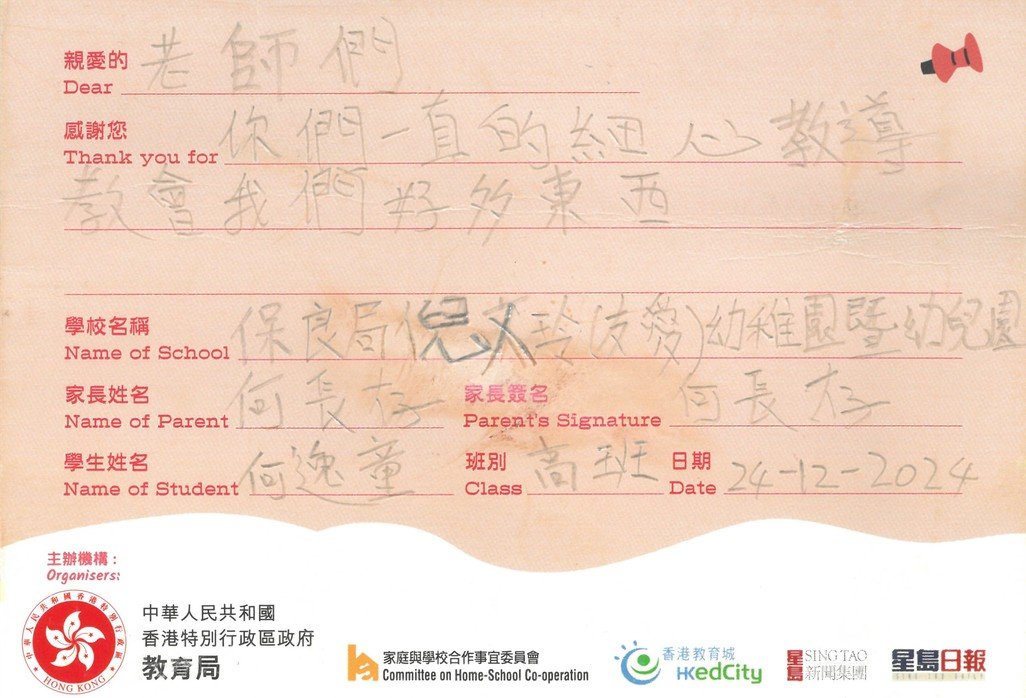 親愛的 老師們
Dear
感謝您 你們一直的細心教導
Thank you for
教會我們好多東西
學校名稱 保良局倪文玲(友愛)幼稚園暨幼兒園
Name of School
家長姓名 何長存 家長簽名 何長存
Name of Parent Parent's Signature
學生姓名 何逸童 班別 高班 日期 24-12-2024
Name of Student Class Date
主辦機構：
Organisers:
中華人民共和國香港特別行政區政府
HONG KONG
中華人民共和國
香港特別行政區政府
教育局
家庭與學校合作事宜委員會
Committee on Home-School Co-operation
香港教育城
HKedCity
星島 SING TAO
新聞集團
星島日報
SING TAO DAILY